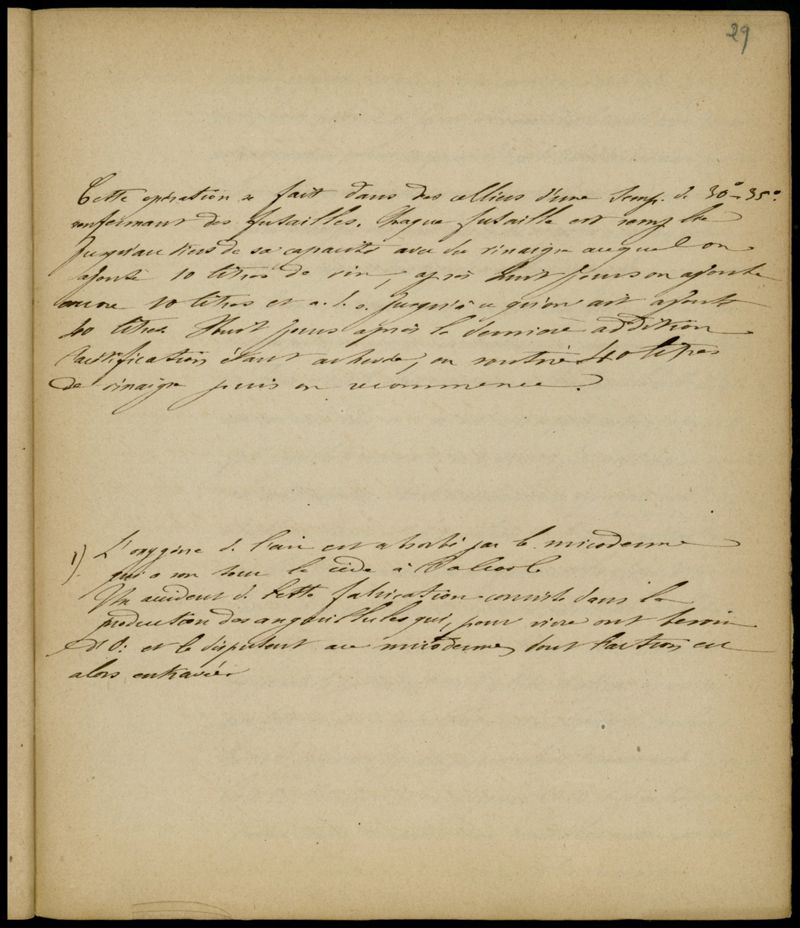 29
Cette opération se fait dans des celliers d'une temp. de 30°-35°.
renfermant des futailles. Chaque futaille est remplie
jusqu'au tiers de sa capacité avec du vinaigre auquel on
ajoute 10 litres de vin, après huit jours on ajoute
encore 10 litres et a. d. s. jusqu'à ce qu'on ait ajouté
40 litres. Huit jours après la dernière addition
l'acétification étant achevée, on soutire 40 litres
de vinaigre puis on recommence.
1) L'oxygène de l'air est absorbé par le micoderme
qui à son tour le cède à l'alcool
Un accident de cette fabrication consiste dans la
production des anguillules qui, pour vivre ont besoin
d'O: et le disputent au micoderme, dont l'action est
alors entravée